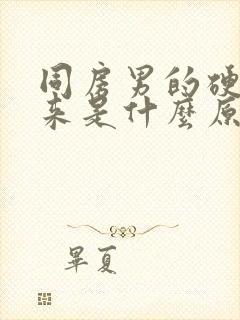 同房男的硬
来是什麼原
畢夏